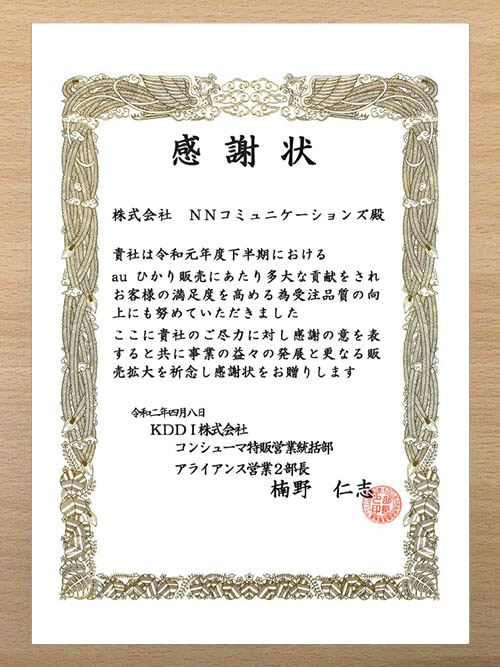 感謝状
株式会社　NNコミュニケーションズ殿
貴社は令和元年度下半期における
au ひかり販売にあたり多大な貢献をされ
お客様の満足度を高める為受注品質の向
上にも努めていただきました
ここに貴社のご尽力に対し感謝の意を表
すると共に事業の益々の発展と更なる販
売拡大を祈念し感謝状をお贈りします
令和二年四月八日
KDDI株式会社
コンシューマ特販営業統括部
アライアンス営業2部長
楠野　仁志